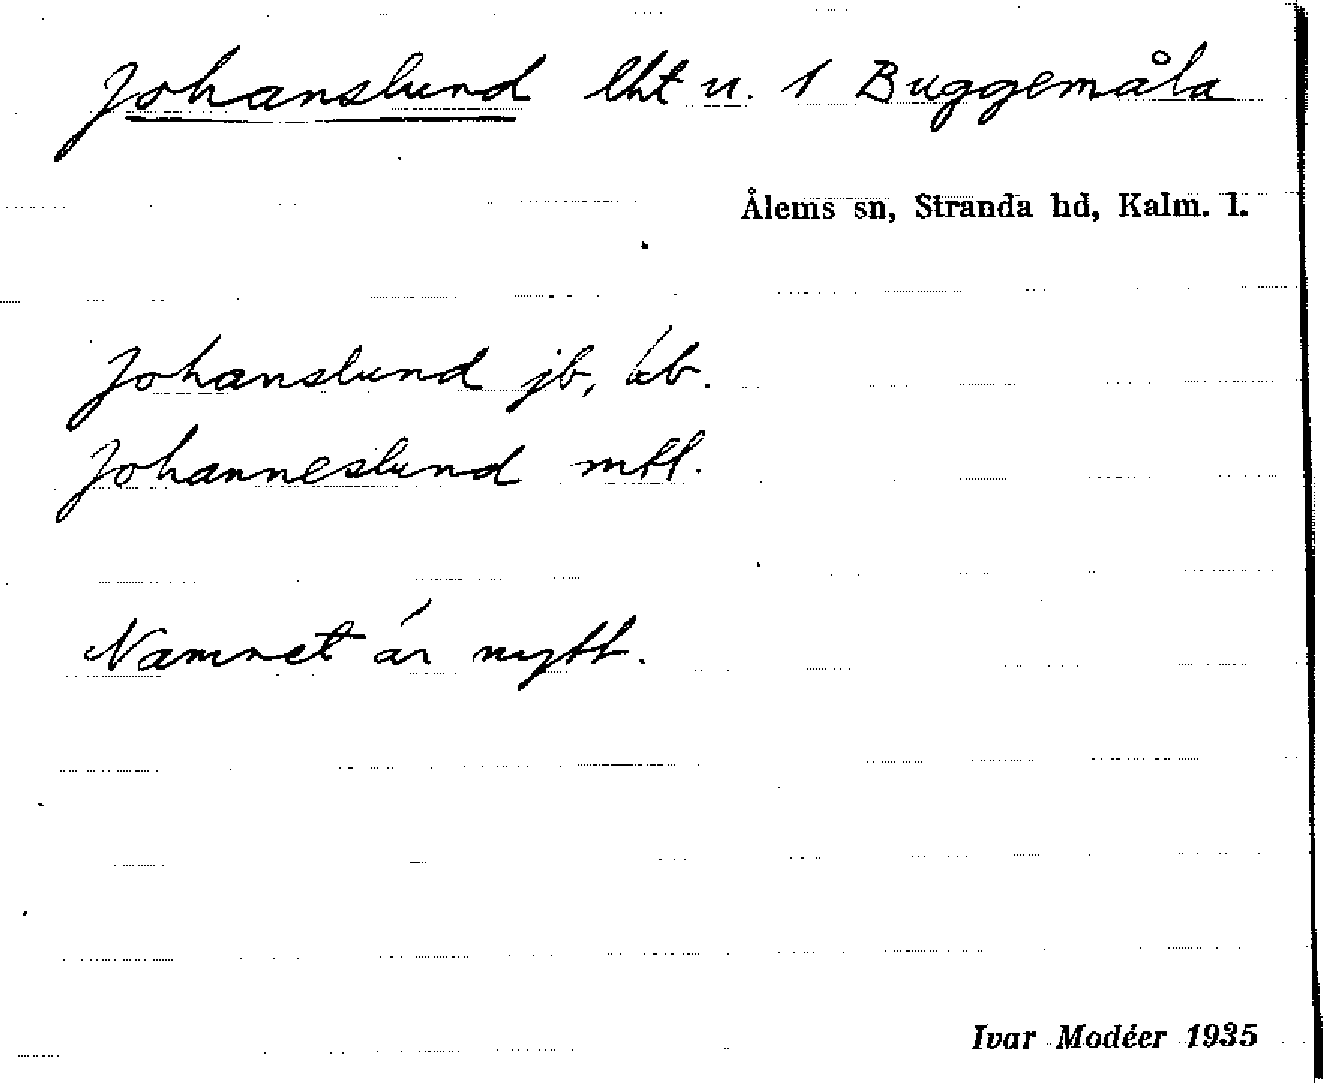 Johanslund lht u. 1 Buggemåla
Ålems sn, Stranda hd, Kalm. l.
Johanslund jb, äb.
Johanneslund mtl.
Namnet är nytt.
Ivar Modéer 1935